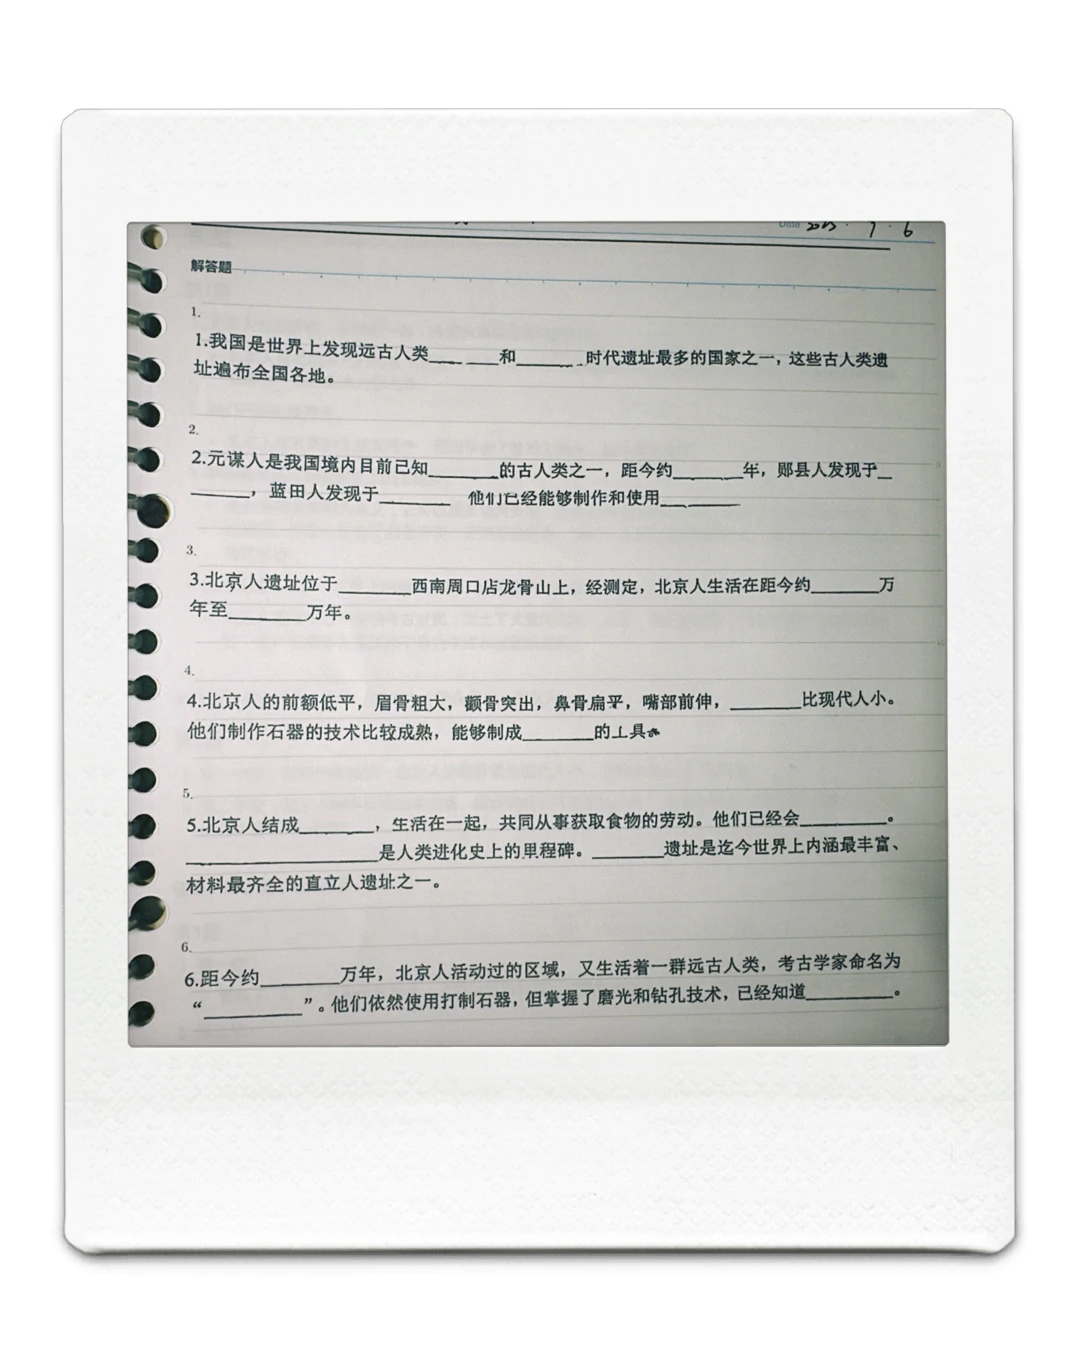 Date 2023 . 7 . 6
解答题
1.
1.我国是世界上发现远古人类___ ___和______时代遗址最多的国家之一，这些古人类遗
址遍布全国各地。
2.
2.元谋人是我国境内目前已知______的古人类之一，距今约______年，郧县人发现于_
_____，蓝田人发现于______ 他们已经能够制作和使用_______
3.
3.北京人遗址位于______西南周口店龙骨山上，经测定，北京人生活在距今约______万
年至______万年。
4.
4.北京人的前额低平，眉骨粗大，颧骨突出，鼻骨扁平，嘴部前伸，______比现代人小。
他们制作石器的技术比较成熟，能够制成______的工具。
5.
5.北京人结成______，生活在一起，共同从事获取食物的劳动。他们已经会_______。
________________是人类进化史上的里程碑。______遗址是迄今世界上内涵最丰富、
材料最齐全的直立人遗址之一。
6.
6.距今约_______万年，北京人活动过的区域，又生活着一群远古人类，考古学家命名为
“________”。他们依然使用打制石器，但掌握了磨光和钻孔技术，已经知道_______。